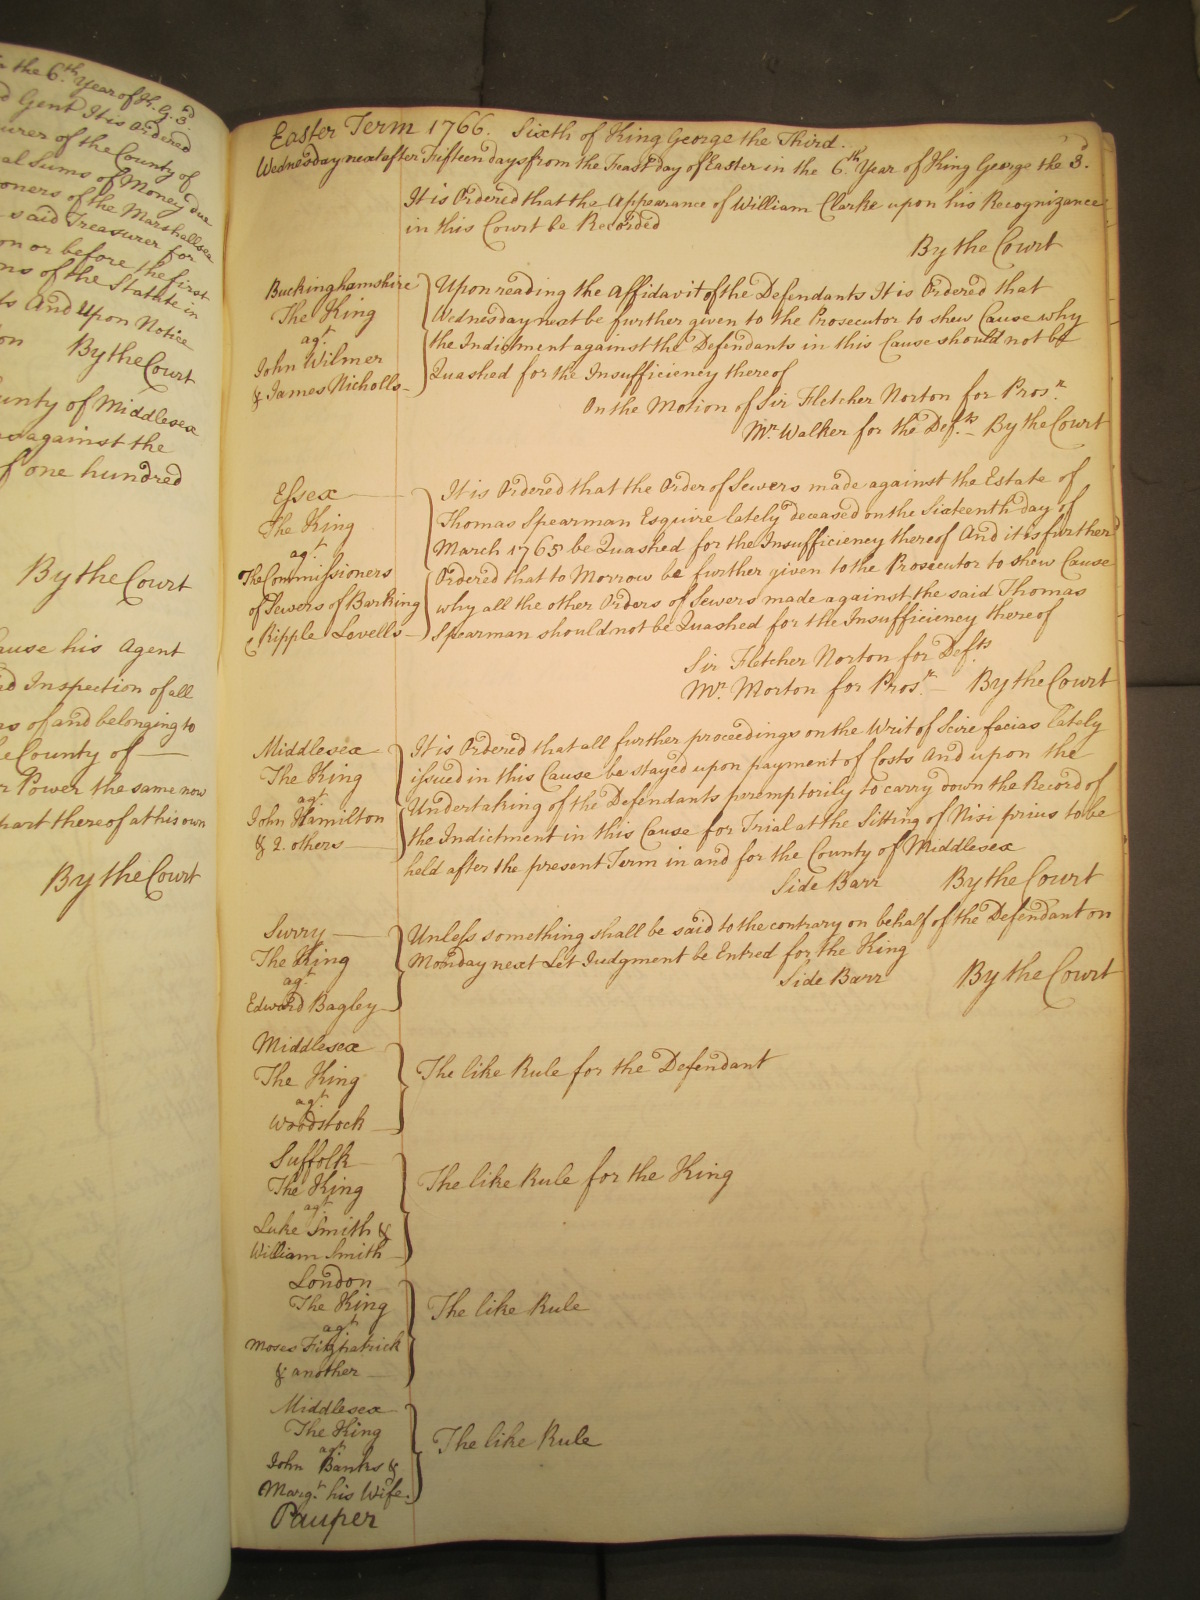 in the 6.th Year of K. G. 3.d
d Gent It is Ordered
urer of the County of
al Sums of Money due
oners of the Marshallsea
said Treasurer for
on or before the first
ns of the Statute in
ts And Upon Notice
on By the Court
unty of Middlesex
against the
f one hundred
By the Court
ause his Agent
nd Inspection of all
as of and belonging to
e County of
r Power the same now
part thereof at his own
By the Court
Easter Term 1766. Sixth of King George the Third.
Wednesday next after Fifteen days from the Feast day of Easter in the 6.th Year of King George the 3.d
It is Ordered that the Appearance of William Clarke upon his Recognizance
in this Court be Recorded
By the Court
Buckinghamshire
The King
ag.t
John Wilmer
& James Nicholls
Upon reading the Affidavit of the Defendants It is Ordered that
Wednesday next be further given to the Prosecutor to shew Cause why
the Indictment against the Defendants in this Cause should not be
Quashed for the Insufficiency thereof
On the Motion of Sir Fletcher Norton for Pros.r
Mr. Walker for the Def.ts By the Court
Essex
The King
ag.t
The Commissioners
of Sewers of Barking
& Ripple Levells
It is Ordered that the Order of Sewers made against the Estate of
Thomas Spearman Esquire lately deceased on the Sixteenth day of
March 1765 be Quashed for the Insufficiency thereof And it is further
Ordered that to Morrow be further given to the Prosecutor to shew Cause
why all the other Orders of Sewers made against the said Thomas
Spearman should not be Quashed for the Insufficiency thereof
Sir Fletcher Norton for Def.ts
Mr. Morton for Pros.r By the Court
Middlesex
The King
ag.t
John Hamilton
& 2. others
It is Ordered that all further proceedings on the Writ of Scire facias lately
issued in this Cause be stayed upon payment of Costs And upon the
Undertaking of the Defendants peremptorily to carry down the Record of
the Indictment in this Cause for Trial at the Sitting of Nisi prius to be
held after the present Term in and for the County of Middlesex
Side Barr By the Court
Surry
The King
ag.t
Edward Bagley
Unless something shall be said to the contrary on behalf of the Defendant on
Monday next Let Judgment be Entred for the King
Side Barr By the Court
Middlesex
The King
ag.t
Woodstock
The like Rule for the Defendant
Suffolk
The King
ag.t
Luke Smith &
William Smith
The like Rule for the King
London
The King
ag.t
Moses Fitzpatrick
& another
The like Rule
Middlesex
The King
ag.t
John Banks &
Marg.t his Wife.
Pauper
The like Rule